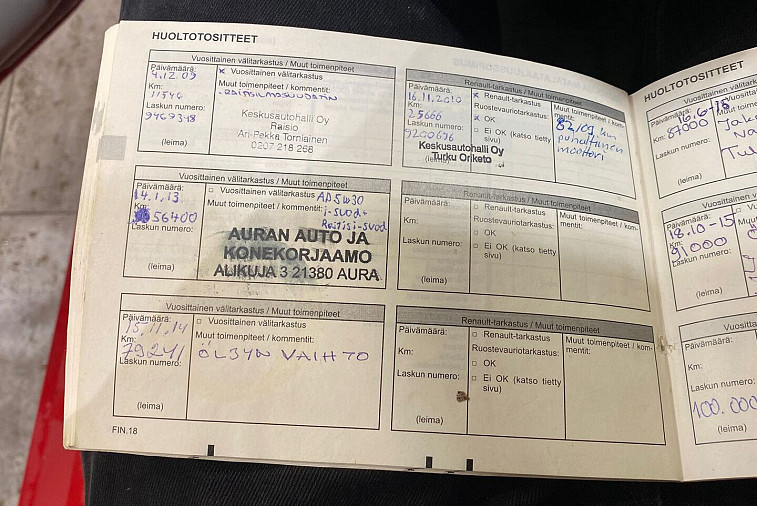 HUOLTOTOSITTEET
Vuosittainen välitarkastus / Muut toimenpiteet
Päivämäärä:
9.12.09
Km:
11546
Laskun numero:
9469348
(leima)
x Vuosittainen välitarkastus
Muut toimenpiteet / kommentit:
-RAITISILMASUODATIN
Keskusautohalli Oy
Raisio
Ari-Pekka Torniainen
0207 218 268
Renault-tarkastus / Muut toimenpiteet
Päivämäärä:
16.11.2010
Km:
25666
Laskun numero:
9200696
Keskusautohalli Oy
Turku Oriketo
(leima)
x Renault-tarkastus
Ruostevauriotarkastus:
x OK
□ Ei OK (katso tietty
sivu)
Muut toimenpiteet / kom-
mentit:
moottori
Vuosittainen välitarkastus / Muut toimenpiteet
Päivämäärä:
14.1.13
Km:
56400
Laskun numero:
(leima)
□ Vuosittainen välitarkastus
Muut toimenpiteet / kommentit:
5W30
i-suod+
Raitisi-suod
AURAN AUTO JA
KONEKORJAAMO
ALIKUJA 3 21380 AURA
Renault-tarkastus / Muut toimenpiteet
Päivämäärä:
Km:
Laskun numero:
(leima)
□ Renault-tarkastus
Ruostevauriotarkastus:
□ OK
□ Ei OK (katso tietty
sivu)
Muut toimenpiteet / kom-
mentit:
Vuosittainen välitarkastus / Muut toimenpiteet
Päivämäärä:
15.11.14
Km:
79241
Laskun numero:
(leima)
□ Vuosittainen välitarkastus
Muut toimenpiteet / kommentit:
ÖLJYN VAIHTO
Renault-tarkastus / Muut toimenpiteet
Päivämäärä:
Km:
Laskun numero:
(leima)
□ Renault-tarkastus
Ruostevauriotarkastus:
□ OK
□ Ei OK (katso tietty
sivu)
Muut toimenpiteet / kom-
mentit:
FIN.18
HUOLTOTOSITTEET
Päivämäärä:
16.6-15
Km:
87000
Laskun numero:
(leima)
Päivämäärä:
18.10-15
Km:
91000
Laskun numero:
(leima)
Päivämäärä:
Km:
Laskun numero:
100.000
(leima)